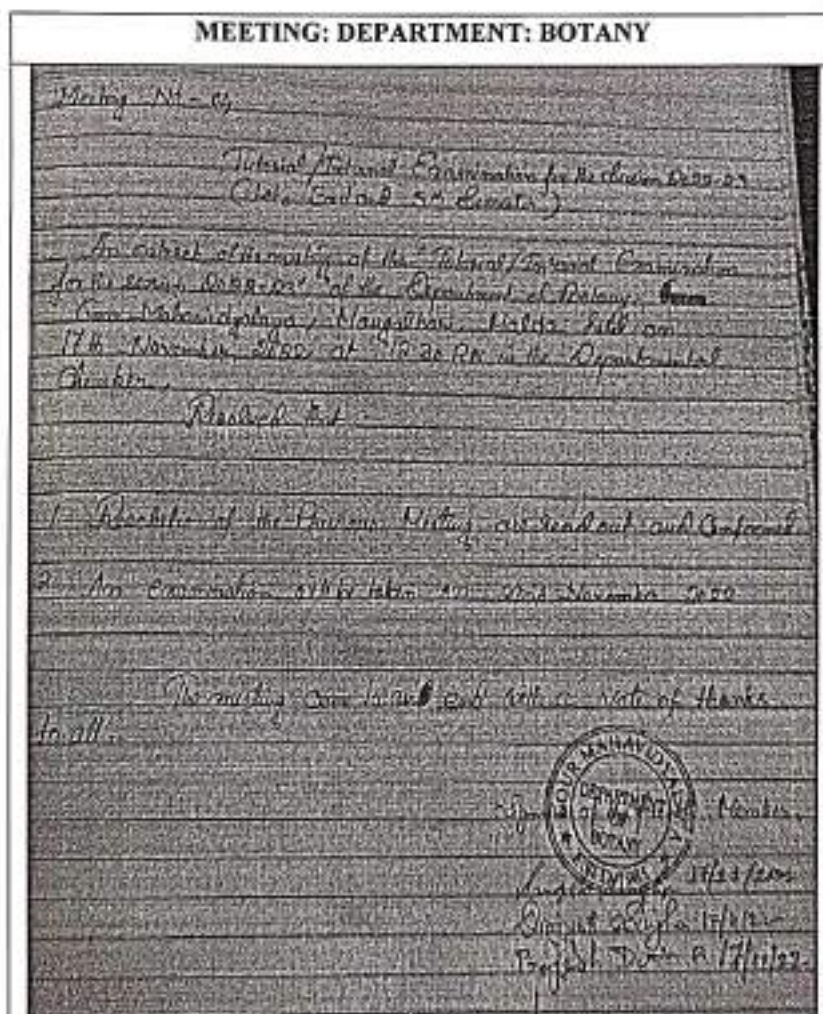 MEETING: DEPARTMENT: BOTANY
Meeting No - 
Tutorial/Internal Examination for the 2022-23
5th Semester)
An extract of the meeting of the "Tutorial/Internal Examination
for the session 2022-23" of the Department of Botany,
Gour Mahavidyalaya, Mangalbari, Malda held on
17th November, 2022 at 12.30 PM in the Departmental
Chamber,
Resolved that :-
1. Resolution of the Previous Meeting are read out and Confirmed
2. An examination will be taken on 22nd November 2022
The meeting end with a vote of thanks
to all.
GOUR MAHAVIDYALAYA
DEPARTMENT
OF
BOTANY
of the Member
17/11/22